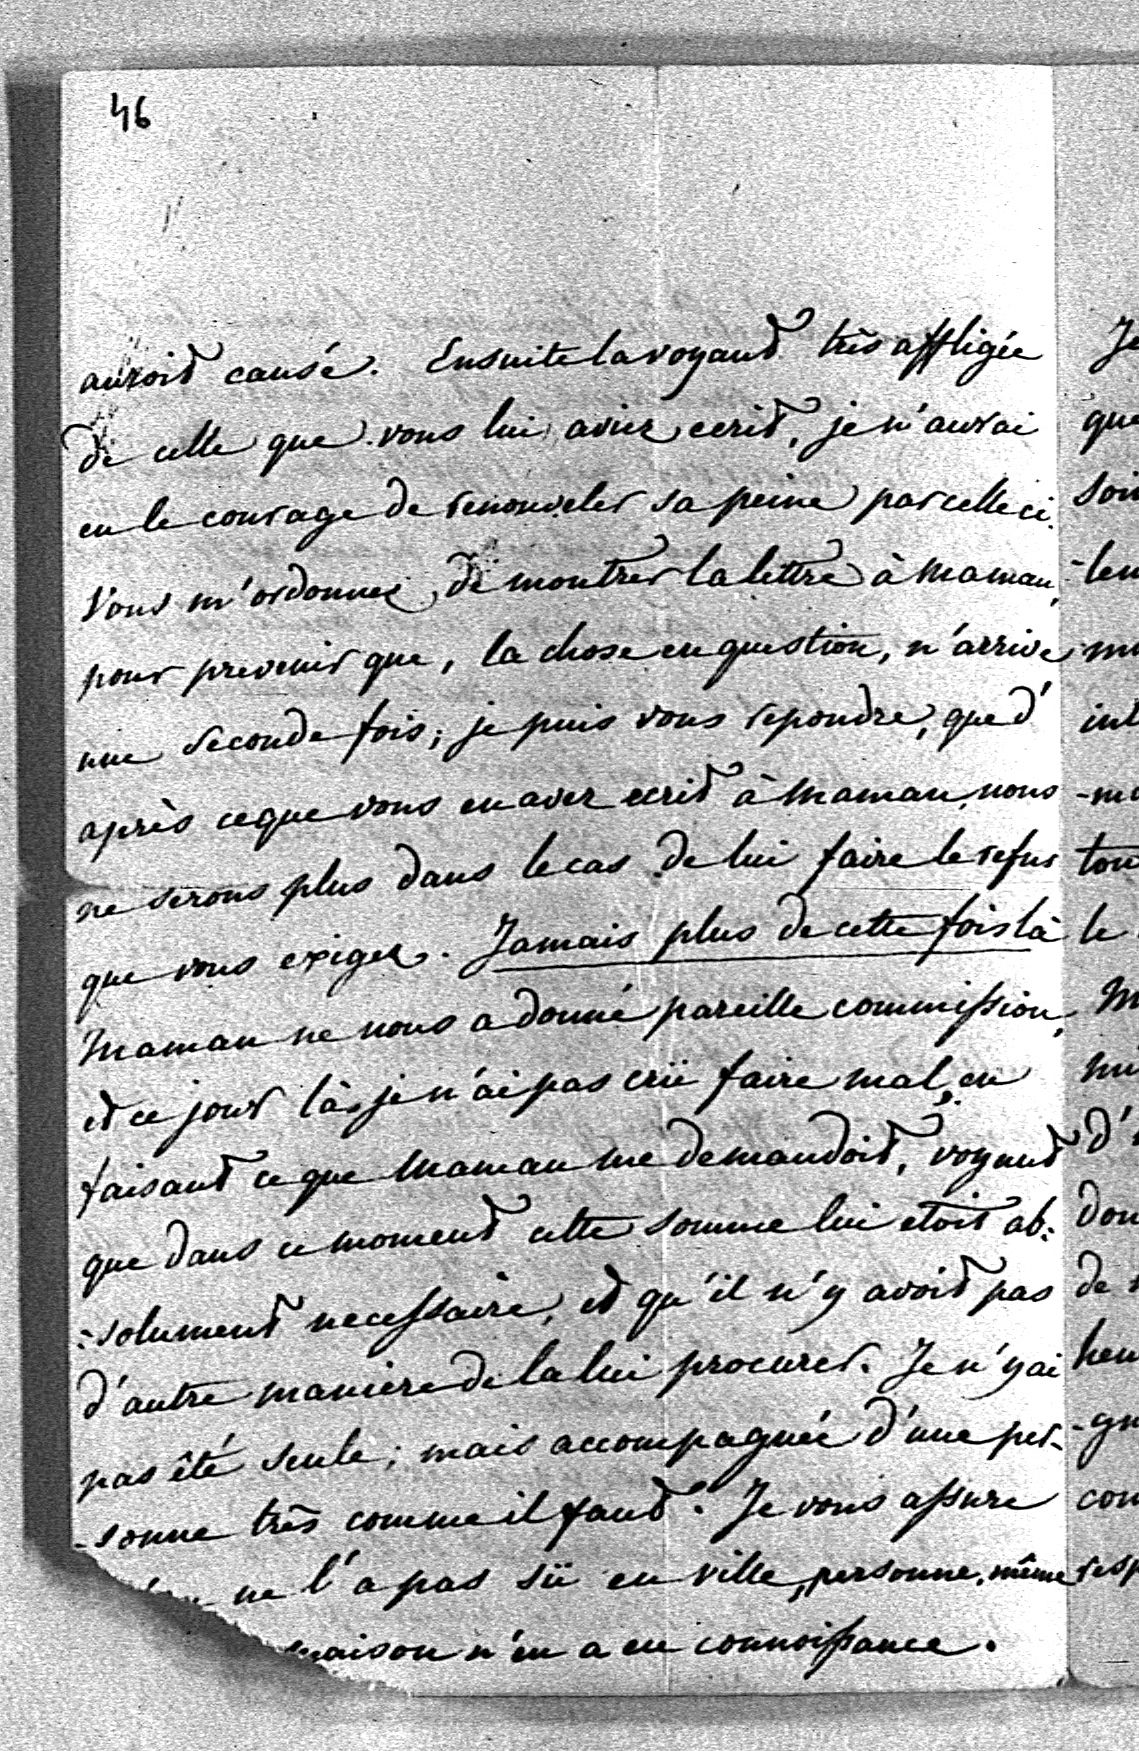 46
auroit causé. Ensuite la voyant très affligée
de celle que vous lui aviez ecrit, je n'aurai
eu le courage de renouveler sa peine par celle ci.
Vous m'ordonnez de montrer la lettre à Maman,
pour prevenir que, la chose en question, n'arrive
une seconde fois; je puis vous repondre, que d'
après ce que vous en avez ecrit à Maman, nous
ne serons plus dans le cas de lui faire le refus
que vous exigez. Jamais plus de cette fois là
Maman ne nous a donné pareille commission,
et ce jour là, je n'ai pas crü faire mal, en
faisant ce que Maman me demandoit, voyant
que dans ce moment cette somme lui etoit ab:
:solument necessaire, et qu'il n'y avoit pas
d'autre maniere de la lui procurer. Je n'y ai
pas été seule; mais accompagnée d'une per-
-sonne très comme il faut. Je vous assure
ne l'a pas sü en ville, personne, même
maison n'en a eu connoissance.
Je
que
soin
-len
int
tou
le
d'
don
de
heu
-gn
con
resp